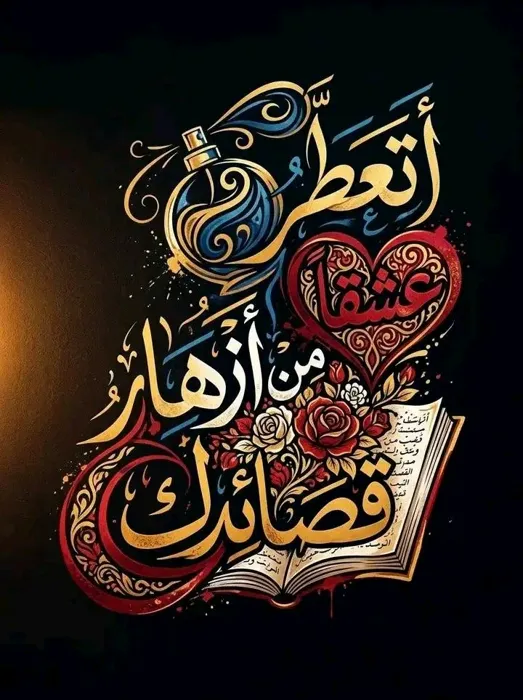 أتَعَطَّر
عشقاً
من أزهار
قصَائِدك